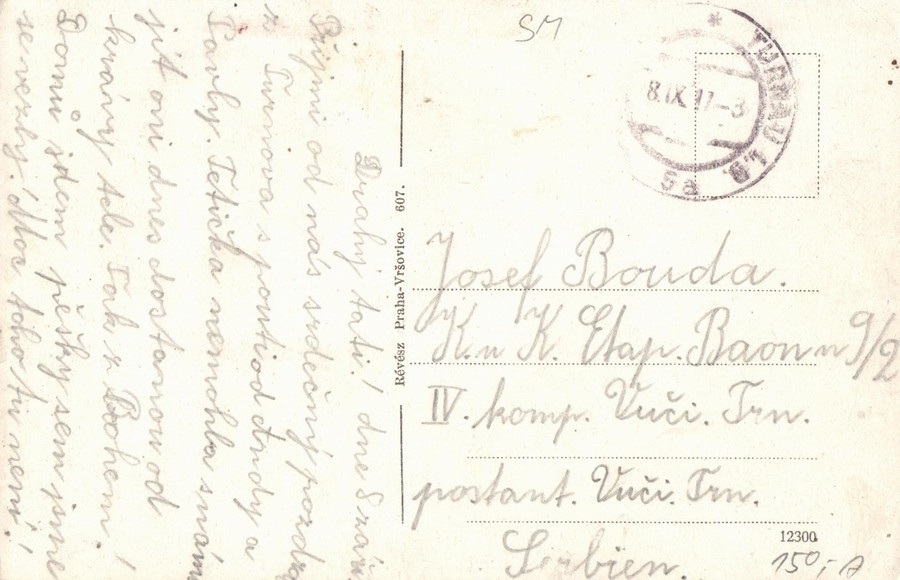 SM
* TURNAU 1.B.
8.IX.17-3
5a
Josef Bouda.
K.u K. Etap. Baon n 9/2
IV. komp. Vuči. Trn.
postant. Vuči. Trn.
Serbien.
12300
150,- A
Révész Praha-Vršovice. 607.
Drahý tati! dne 8 září
Přijmi od nás srdečný pozdra
z Turnova s pouti od
a
Pavly. Tetička nemohla s námi
jít oni dnes dostanou od
krávy tele. Tak z Bohem!
Domů jdem pěšky sem jsme
se vezly. Moc toho tu není!